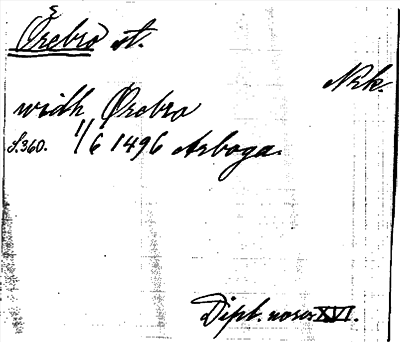 Örebro st.
Nrk.
widh Ørebro
s.360. 1/6 1496 Arboga.
Dipl. norv. XVI.